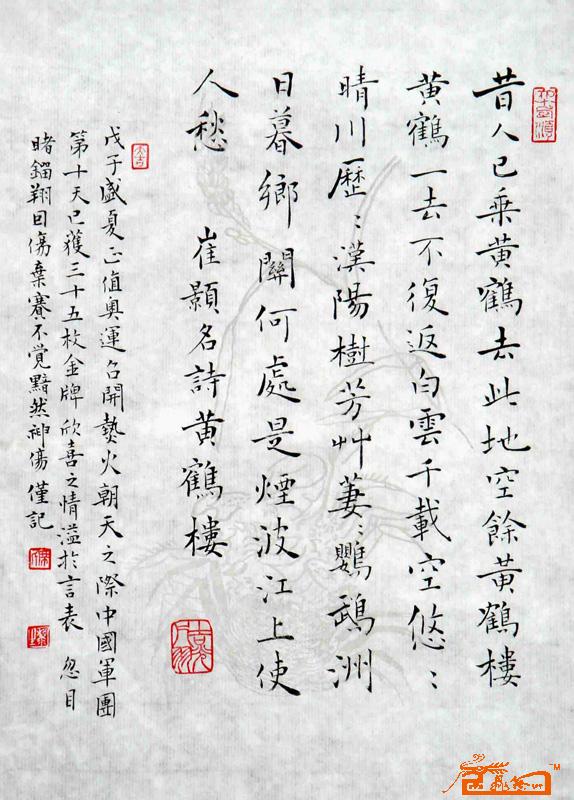 昔人已乘黃鶴去此地空餘黃鶴樓
黃鶴一去不復返白雲千載空悠〻
晴川歷〻漢陽樹芳艸萋〻鸚鵡洲
日暮鄉關何處是煙波江上使
人愁 崔顥名詩黃鶴樓
戊子盛夏正值奧運召開熱火朝天之際中國軍團
第十天已獲三十五枚金牌欣喜之情溢於言表 忽目
睹鎦翔因傷棄賽不覺黯然神傷僅記